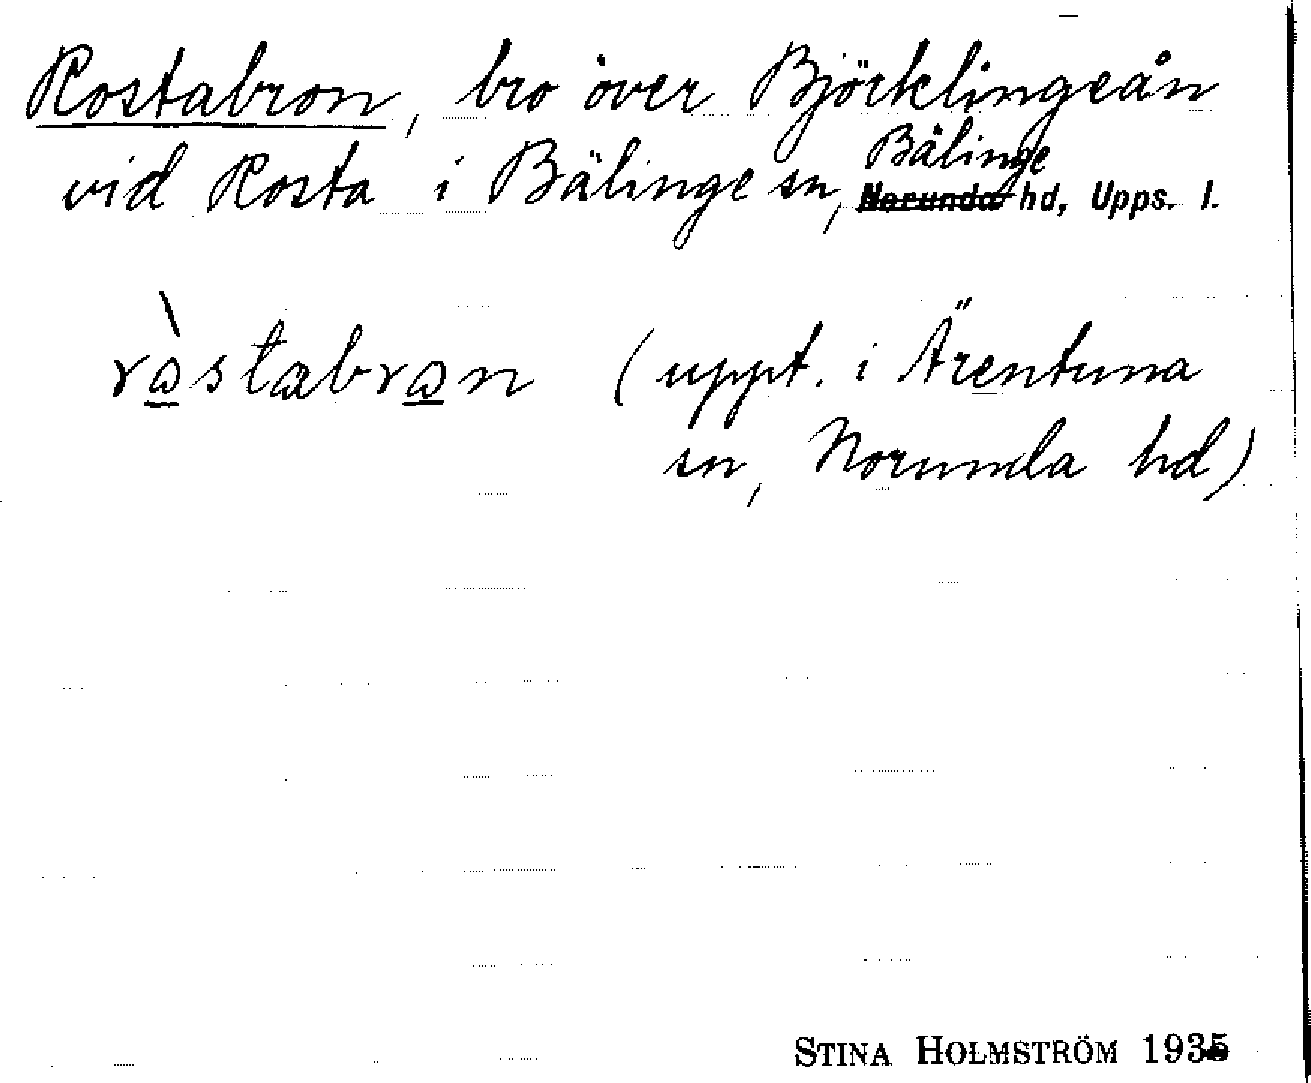 Rostabron, bro över Björklingeån
vid Rosta i Bälinge sn, Bälinge hd, Upps. l.
ròstabron (uppt. i Ärentuna
sn, Norunda hd)
STINA HOLMSTRÖM 1935